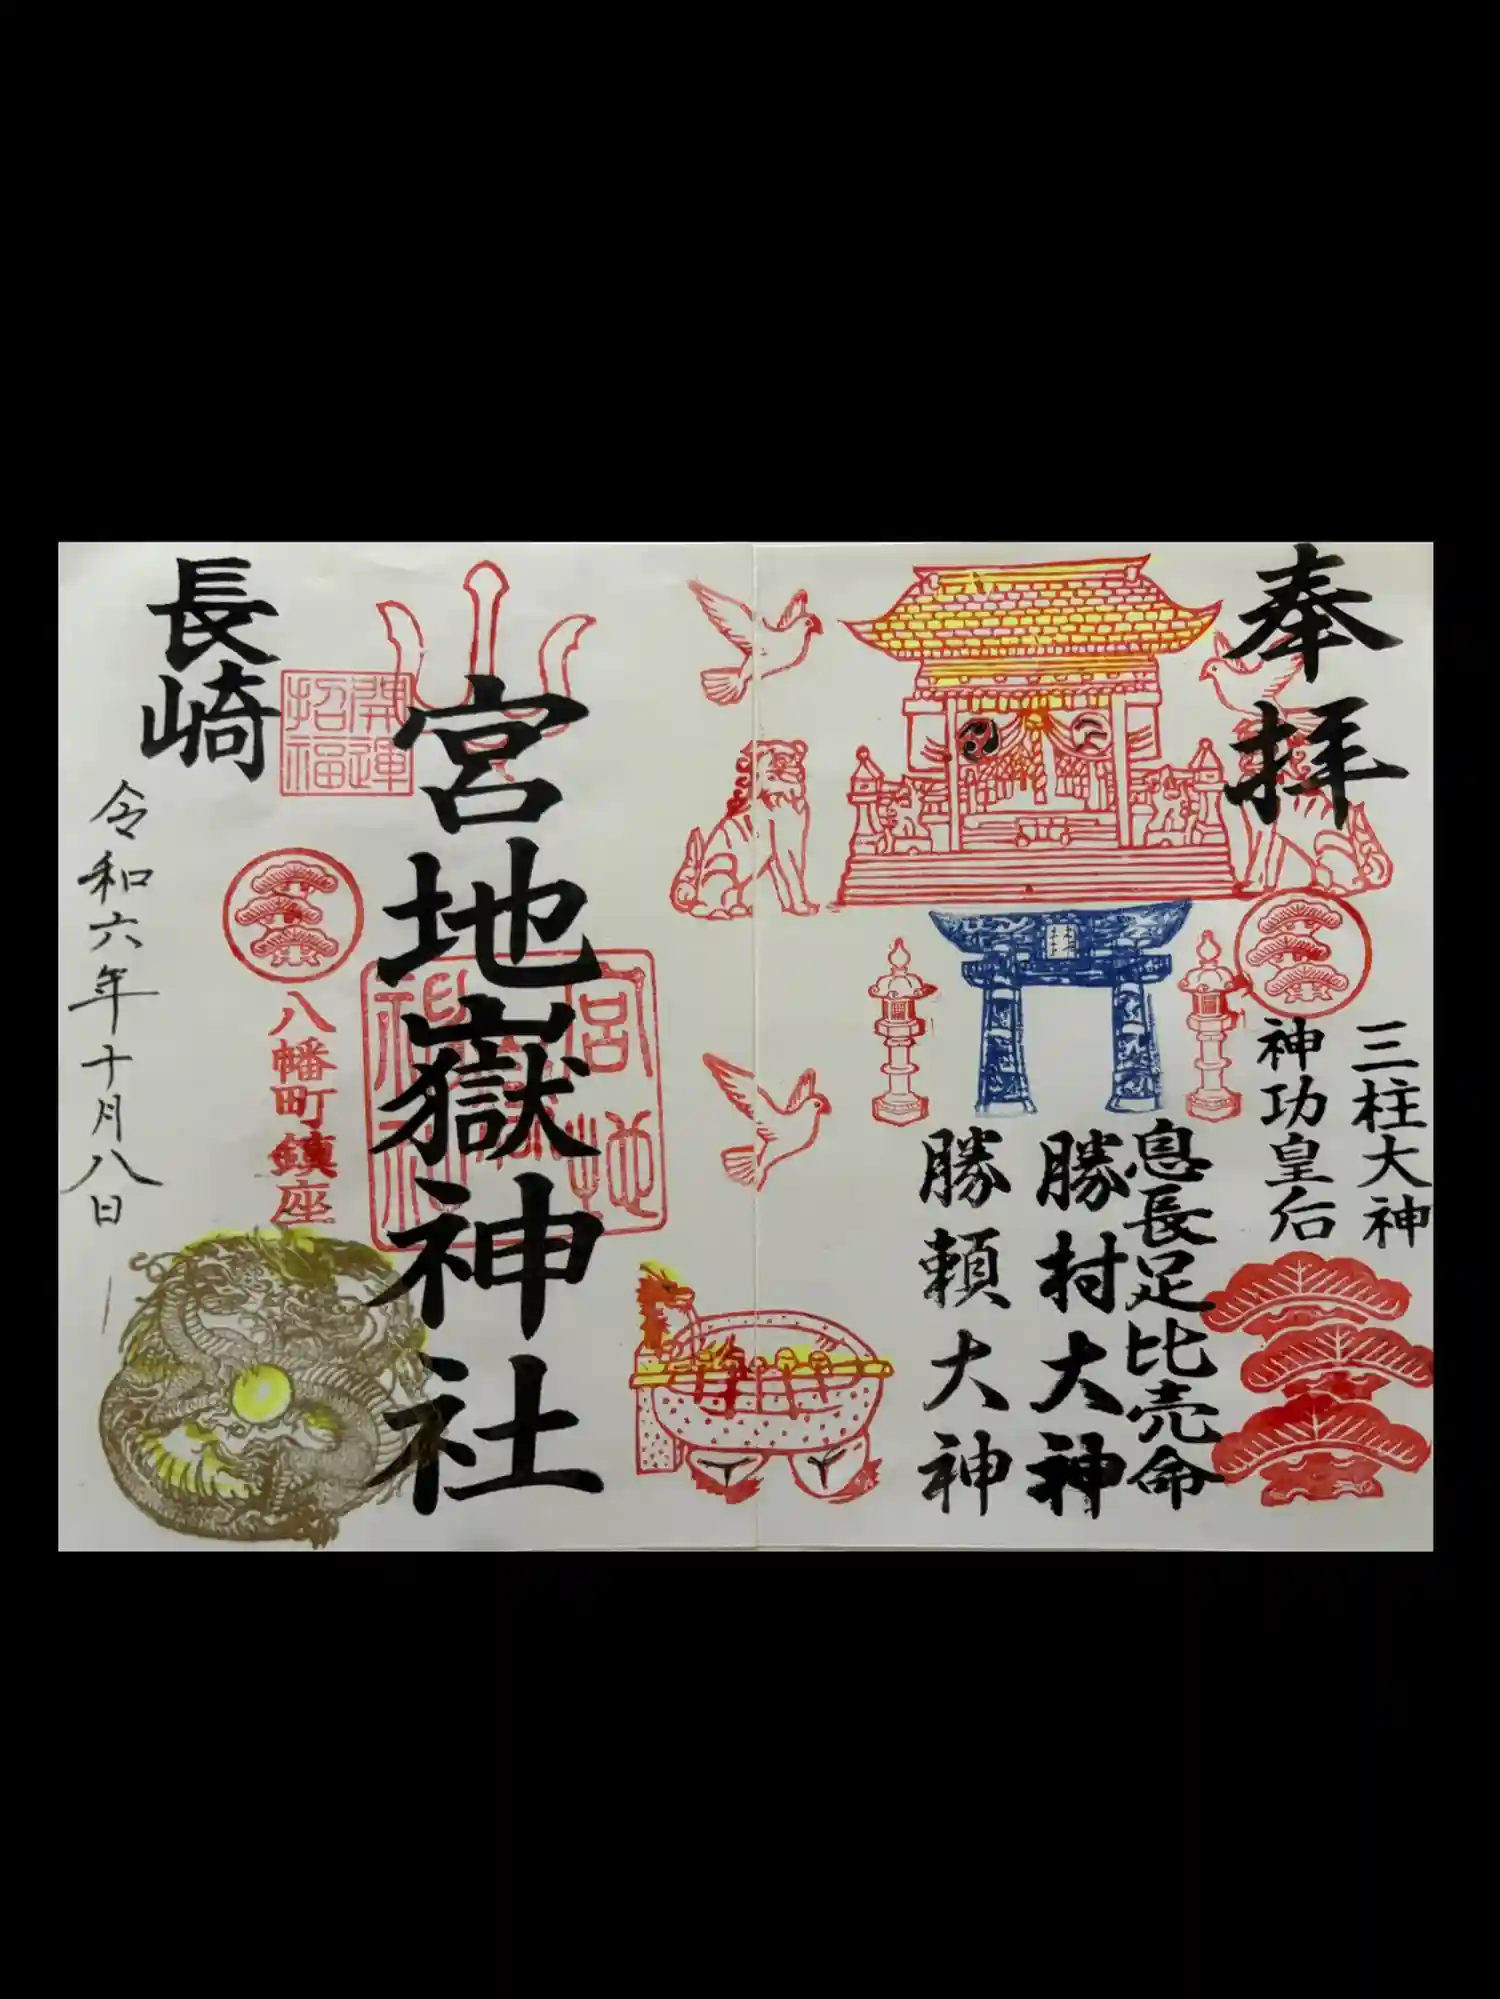 奉拝
三柱大神
神功皇后
息長足比売命
勝村大神
勝頼大神
宮地嶽神社
宮地嶽神社
開運招福
長崎
八幡町鎮座
令和六年十月八日